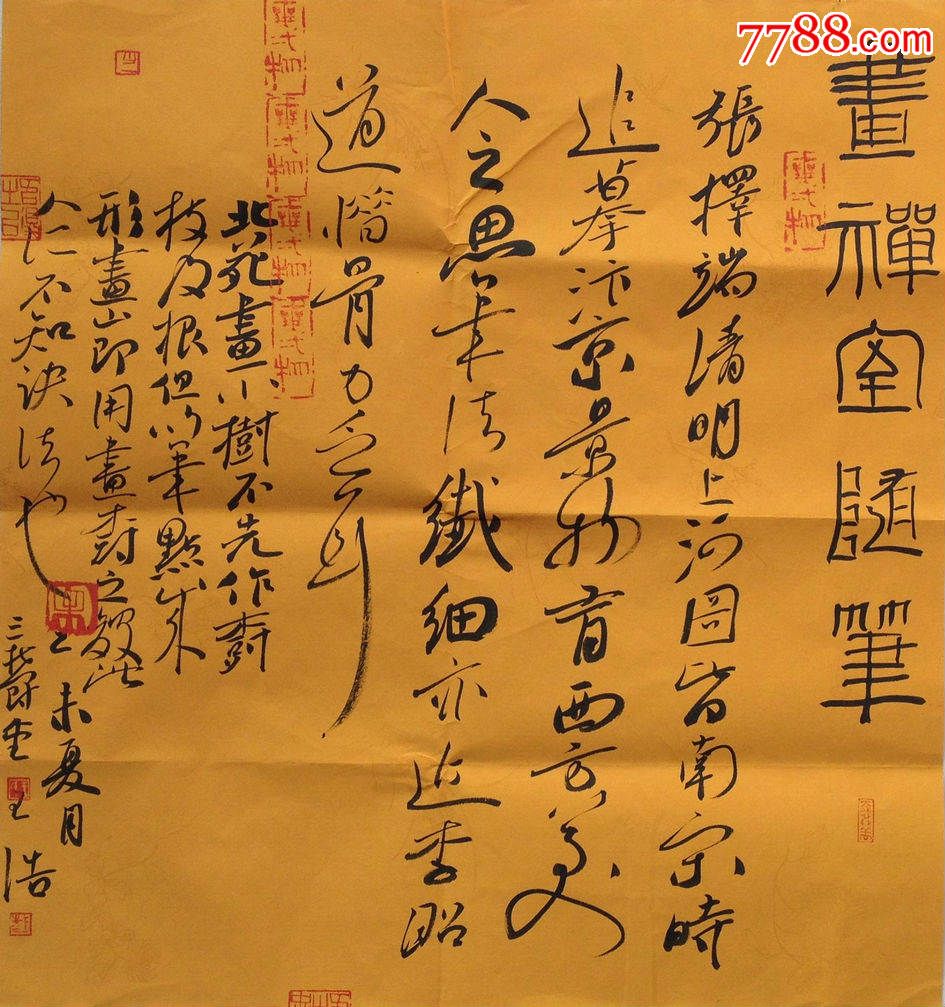 7788.com
畫禪室隨筆
張擇端清明上河圖皆南宋時
追摹汴京景物有西方美
人之思筆法纖細亦近李昭
道惜骨力乏耳
北苑畫小樹不先作樹
枝及根但以筆點成
形畫山即用畫樹之皴此
人所不知訣法也
乙未夏月
三堂王浩